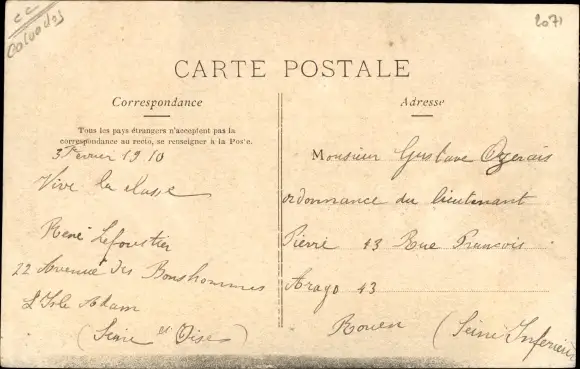 cc
Calvados
2071
CARTE POSTALE
Correspondance
Tous les pays étrangers n'acceptent pas la
correspondance au recto, se renseigner à la Pos'e.
3 Fevrier 1910
Vive la classe
René Lefoustier
22 Avenue des Bonshommes
L'Isle Adam
(Seine et Oise)
Adresse
Monsieur Gustave Ogerais
ordonnance du lieutenant
Pierre 43 Rue Francois
Arago 43
Rouen (Seine Inferieure